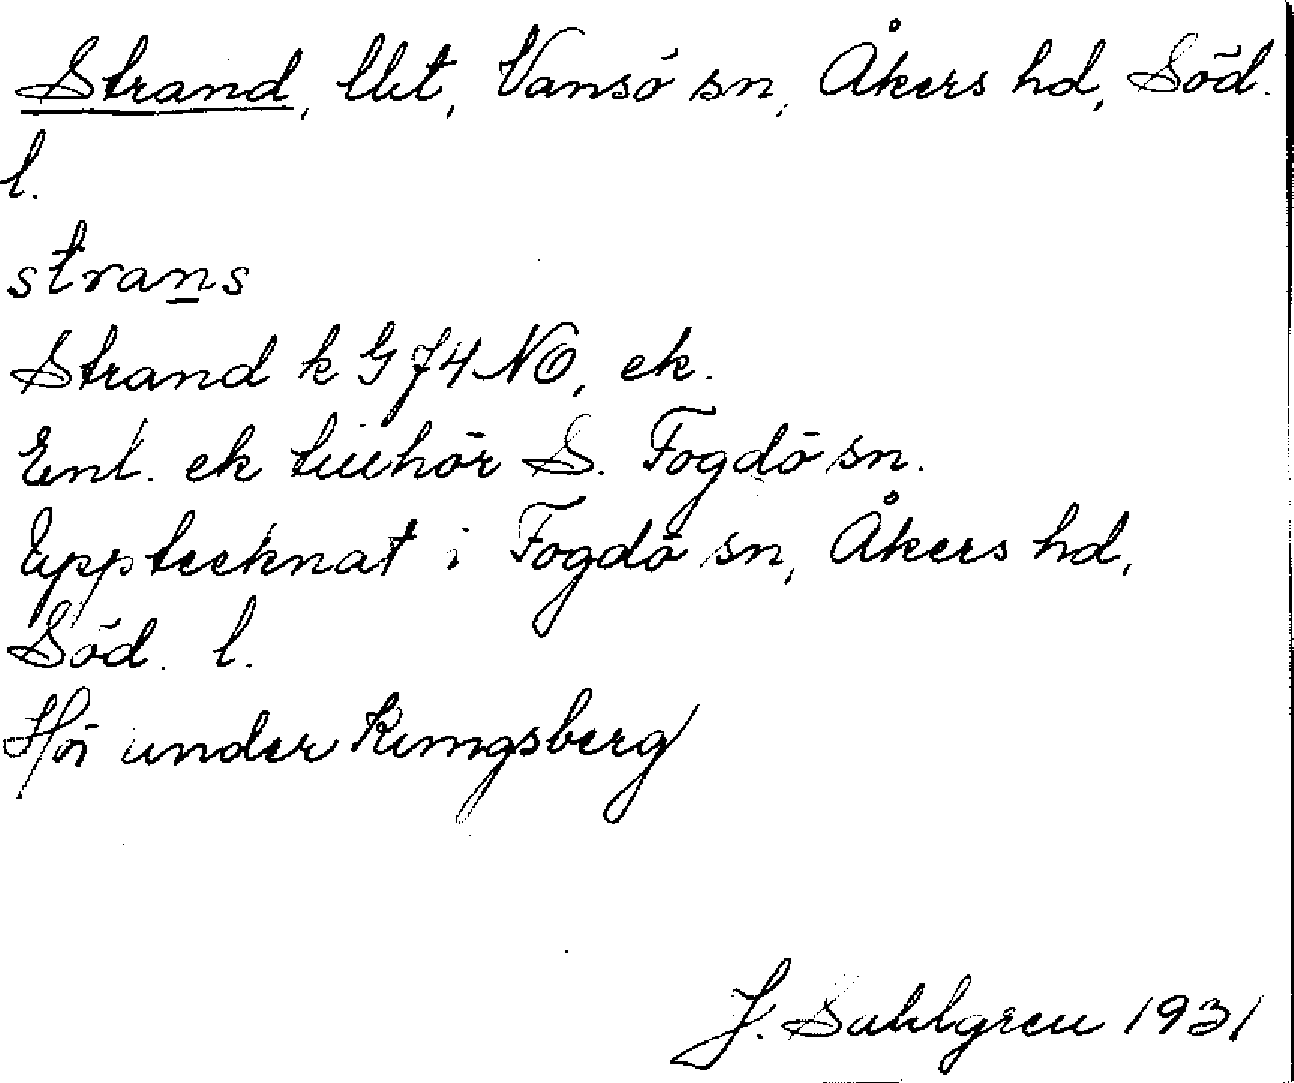 Strand, lht, Vansö sn, Åkers hd, Söd.
l.
strans
Strand k G 74 NO, ek.
Enl. ek tillhör S. Fogdö sn.
Upptecknat i Fogdö sn, Åkers hd,
Söd. l.
Hör under Kungsberg
J. Sahlgren 1931